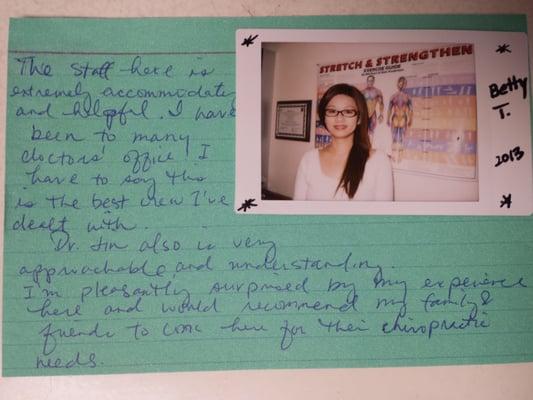 The staff here is
extremely accommodate
and helpful. I have
been to many
doctors' office. I
have to say this
is the best crew I've
dealt with.
Dr. Lin also is very
approachable and understanding.
I'm pleasantly surprised by my experience
here and would recommend my family &
friends to come here for their chiropractic
needs.
STRETCH & STRENGTHEN
EXERCISE GUIDE
Betty
T.
2013